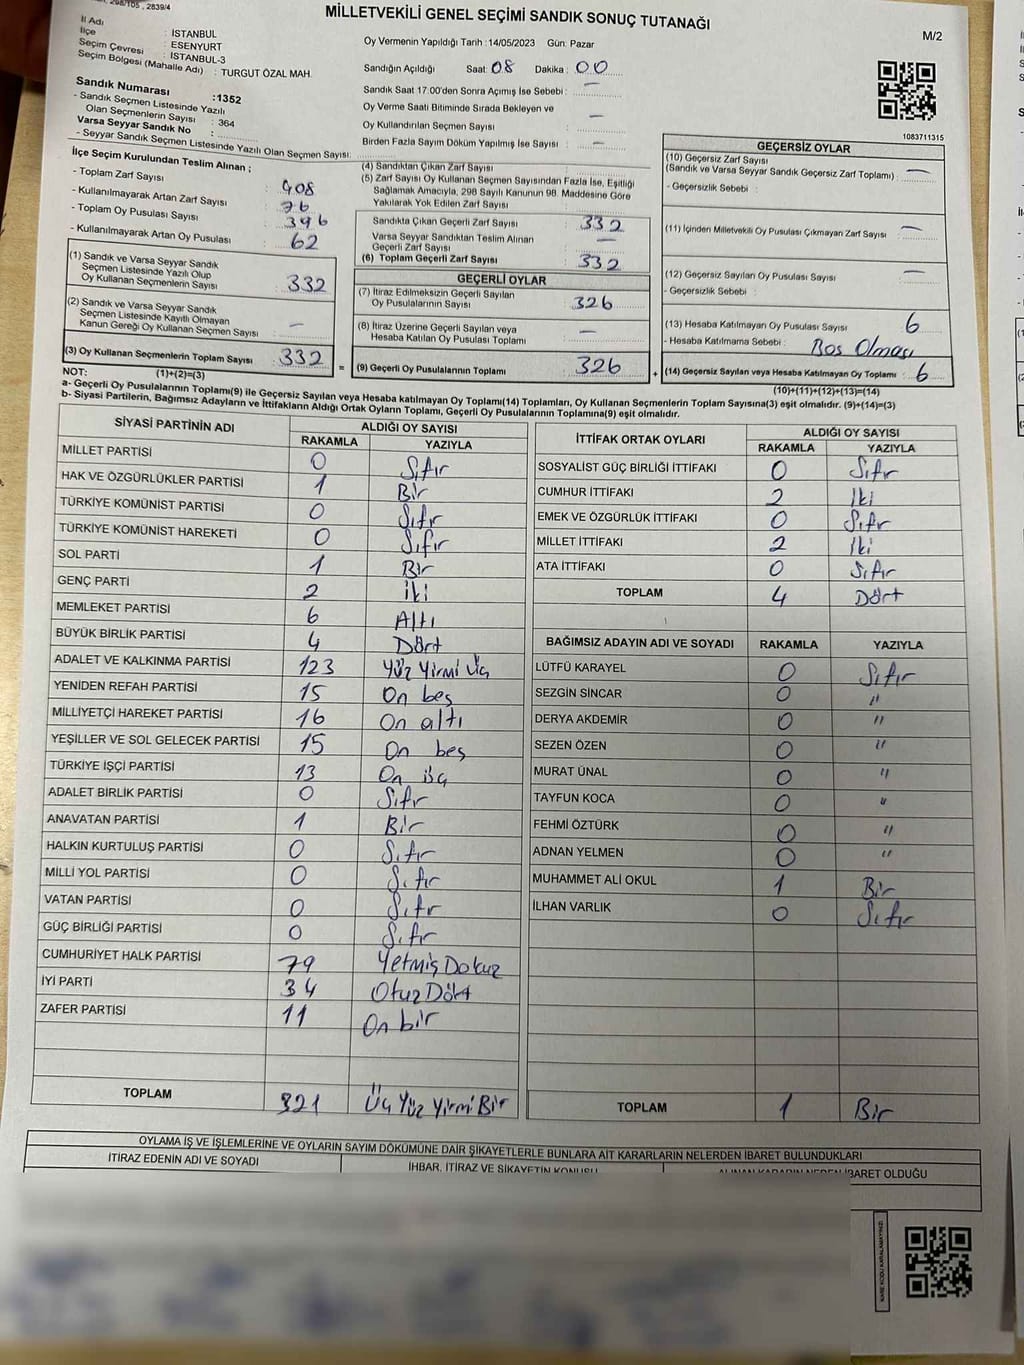 298/105 , 2839/4
MİLLETVEKİLİ GENEL SEÇİMİ SANDIK SONUÇ TUTANAĞI
M/2
İl Adı : İSTANBUL
İlçe : ESENYURT
Seçim Çevresi : İSTANBUL-3
Seçim Bölgesi (Mahalle Adı) : TURGUT ÖZAL MAH.
Sandık Numarası :1352
- Sandık Seçmen Listesinde Yazılı
Olan Seçmenlerin Sayısı : 364
Varsa Seyyar Sandık No :
- Seyyar Sandık Seçmen Listesinde Yazılı Olan Seçmen Sayısı:
Oy Vermenin Yapıldığı Tarih :14/05/2023 Gün: Pazar
Sandığın Açıldığı Saat: 08 Dakika : 00
Sandık Saat 17:00'den Sonra Açımış İse Sebebi : —
Oy Verme Saati Bitiminde Sırada Bekleyen ve
Oy Kullandırılan Seçmen Sayısı : —
Birden Fazla Sayım Döküm Yapılmış İse Sayısı : —
1083711315
İlçe Seçim Kurulundan Teslim Alınan ;
- Toplam Zarf Sayısı : 408
- Kullanılmayarak Artan Zarf Sayısı : 76
- Toplam Oy Pusulası Sayısı : 396
- Kullanılmayarak Artan Oy Pusulası : 62
(1) Sandık ve Varsa Seyyar
Seçmen Listesinde Yazılı Olup
Oy Kullanan Seçmenlerin Sayısı : 332
(2) Sandık ve Varsa Seyyar Sandık
Seçmen Listesinde Kayıtlı Olmayan
Kanun Gereği Oy Kullanan Seçmen Sayısı : —
(3) Oy Kullanan Seçmenlerin Toplam Sayısı : 332
(4) Sandıktan Çıkan Zarf Sayısı :
(5) Zarf Sayısı Oy Kullanan Seçmen Sayısından Fazla İse, Eşitliği
Sağlamak Amacıyla, 298 Sayılı Kanunun 98. Maddesine Göre
Yakılarak Yok Edilen Zarf Sayısı :
Sandıkta Çıkan Geçerli Zarf Sayısı : 332
Varsa Seyyar Sandıktan Teslim Alınan
Geçerli Zarf Sayısı : —
(6) Toplam Geçerli Zarf Sayısı : 332
GEÇERLİ OYLAR
(7) İtiraz Edilmeksizin Geçerli Sayılan
Oy Pusulalarının Sayısı : 326
(8) İtiraz Üzerine Geçerli Sayılan veya
Hesaba Katılan Oy Pusulası Toplamı : —
= (9) Geçerli Oy Pusulalarının Toplamı : 326 +
GEÇERSİZ OYLAR
(10) Geçersiz Zarf Sayısı
(Sandık ve Varsa Seyyar Sandık Geçersiz Zarf Toplamı) : —
- Geçersizlik Sebebi :
(11) İçinden Milletvekili Oy Pusulası Çıkmayan Zarf Sayısı : —
(12) Geçersiz Sayılan Oy Pusulası Sayısı : —
- Geçersizlik Sebebi :
(13) Hesaba Katılmayan Oy Pusulası Sayısı : 6
- Hesaba Katılmama Sebebi : Boş Olması
(14) Geçersiz Sayılan veya Hesaba Katılmayan Oy Toplamı : 6
NOT: (1)+(2)=(3) (10)+(11)+(12)+(13)=(14)
a- Geçerli Oy Pusulalarının Toplamı(9) ile Geçersiz Sayılan veya Hesaba Katılmayan Oy Toplamı(14) Toplamları, Oy Kullanan Seçmenlerin Toplam Sayısına(3) eşit olmalıdır. (9)+(14)=(3)
b- Siyasi Partilerin, Bağımsız Adayların ve İttifakların Aldığı Ortak Oyların Toplamı, Geçerli Oy Pusulalarının Toplamına(9) eşit olmalıdır.
SİYASİ PARTİNİN ADI ALDIĞI OY SAYISI
RAKAMLA YAZIYLA
MİLLET PARTİSİ 0 Sıfır
HAK VE ÖZGÜRLÜKLER PARTİSİ 1 Bir
TÜRKİYE KOMÜNİST PARTİSİ 0 Sıfır
TÜRKİYE KOMÜNİST HAREKETİ 0 Sıfır
SOL PARTİ 1 Bir
GENÇ PARTİ 2 İki
MEMLEKET PARTİSİ 6 Altı
BÜYÜK BİRLİK PARTİSİ 4 Dört
ADALET VE KALKINMA PARTİSİ 123 Yüz Yirmi Üç
YENİDEN REFAH PARTİSİ 15 On beş
MİLLİYETÇİ HAREKET PARTİSİ 16 On altı
YEŞİLLER VE SOL GELECEK PARTİSİ 15 On beş
TÜRKİYE İŞÇİ PARTİSİ 13 On üç
ADALET BİRLİK PARTİSİ 0 Sıfır
ANAVATAN PARTİSİ 1 Bir
HALKIN KURTULUŞ PARTİSİ 0 Sıfır
MİLLİ YOL PARTİSİ 0 Sıfır
VATAN PARTİSİ 0 Sıfır
GÜÇ BİRLİĞİ PARTİSİ 0 Sıfır
CUMHURİYET HALK PARTİSİ 79 Yetmiş Dokuz
İYİ PARTİ 34 Otuz Dört
ZAFER PARTİSİ 11 On bir
TOPLAM 321 Üç Yüz Yirmi Bir
İTTİFAK ORTAK OYLARI ALDIĞI OY SAYISI
RAKAMLA YAZIYLA
SOSYALİST GÜÇ BİRLİĞİ İTTİFAKI 0 Sıfır
CUMHUR İTTİFAKI 2 İki
EMEK VE ÖZGÜRLÜK İTTİFAKI 0 Sıfır
MİLLET İTTİFAKI 2 İki
ATA İTTİFAKI 0 Sıfır
TOPLAM 4 Dört
BAĞIMSIZ ADAYIN ADI VE SOYADI RAKAMLA YAZIYLA
LÜTFÜ KARAYEL 0 Sıfır
SEZGİN SİNCAR 0 "
DERYA AKDEMİR 0 "
SEZEN ÖZEN 0 "
MURAT ÜNAL 0 "
TAYFUN KOCA 0 "
FEHMİ ÖZTÜRK 0 "
ADNAN YELMEN 0 "
MUHAMMET ALİ OKUL 1 Bir
İLHAN VARLIK 0 Sıfır
TOPLAM 1 Bir
OYLAMA İŞ VE İŞLEMLERİNE VE OYLARIN SAYIM DÖKÜMÜNE DAİR ŞİKAYETLERLE BUNLARA AİT KARARLARIN NELERDEN İBARET BULUNDUKLARI
İTİRAZ EDENİN ADI VE SOYADI İHBAR, İTİRAZ VE ŞİKAYETİN KONUSU ALINAN KARARIN NEDEN İBARET OLDUĞU
KARE KODU KARALAMAYINIZ!